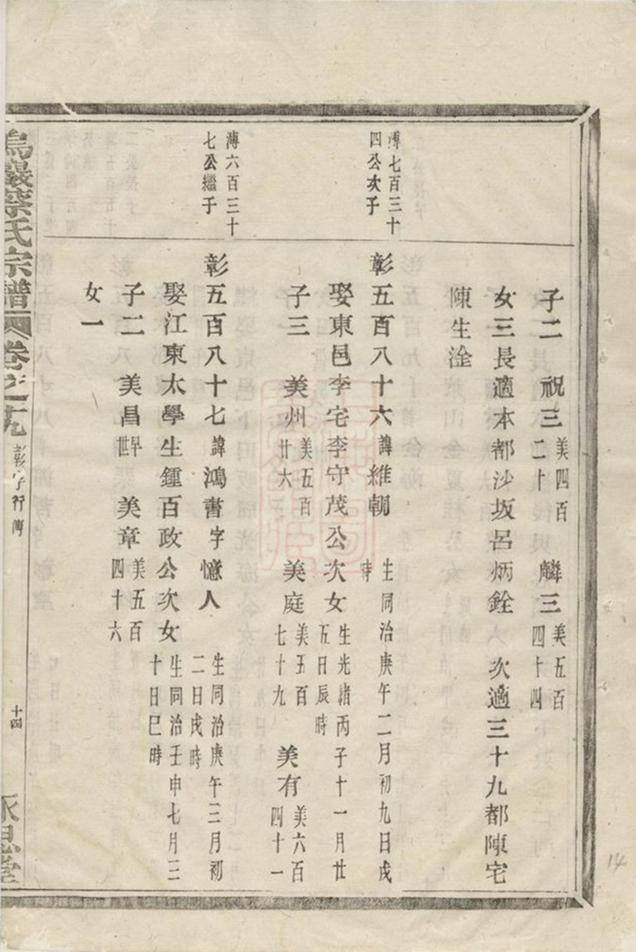 子二 祝三 美四百二十 麟三 美五百四十四
女三長適本都沙坂呂炳銓 次適三十九都陳宅
陳生淦
溥七百三十四公次子
彰五百八十六 諱維朝 生同治庚午二月初九日戌時
娶東邑李宅李守茂公次女 生光緒丙子十一月廿五日辰時
子三 美州 美五百廿六 美庭 美五百七十九 美有 美六百四十一
溥六百三十七公繼子
彰五百八十七 諱鴻書字憶人 生同治庚午三月初二日戌時
娶江東太學生鍾百政公次女 生同治壬申七月三十日巳時
子二 美昌 早世 美章 美五百四十六
女一
蔡氏宗譜 卷之十九 彰字行傳 十四
14